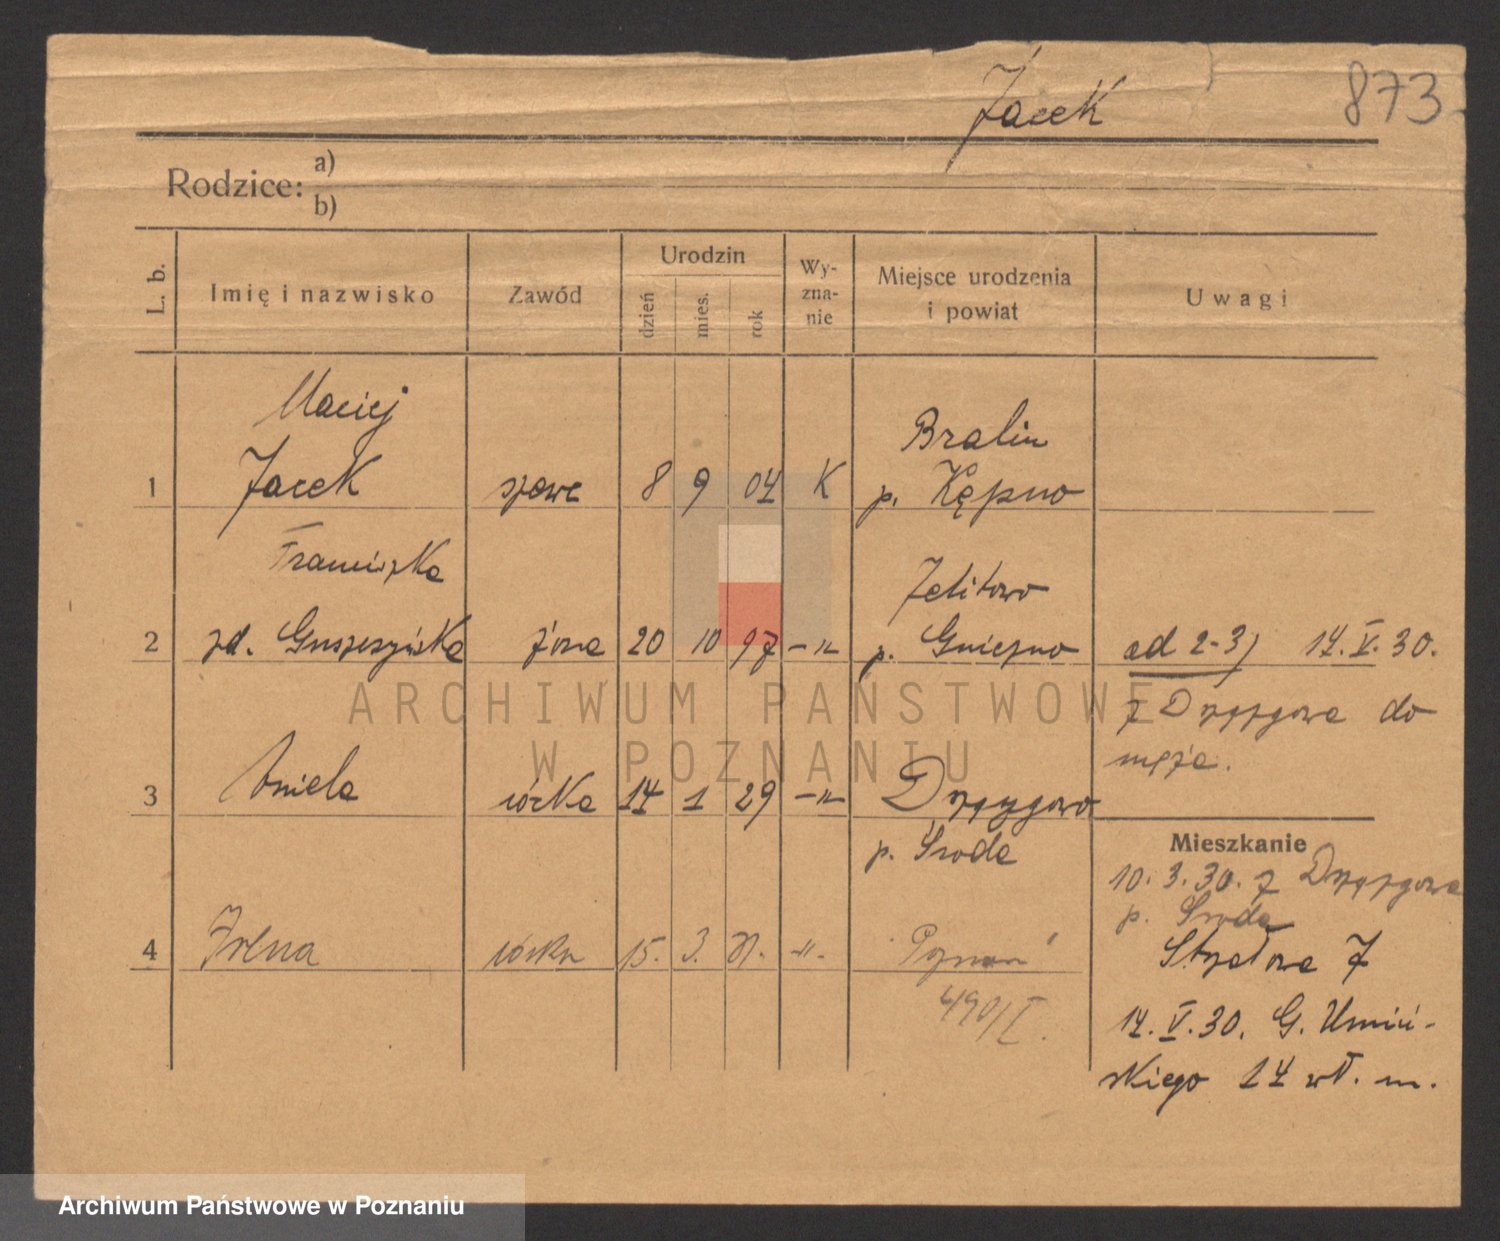 Jacek
873
Rodzice: a)
b)
L. b.
Imię i nazwisko
Zawód
Urodzin
dzień
mies.
rok
Wy-
zna-
nie
Miejsce urodzenia
i powiat
Uwagi
Maciej
1 Jacek szewc 8 9 04 K
Bralin
p. Kępno
Franciszka
2 zd. żona 20 10 97 -"-
p. Gniezno
ad 2-3) 14.V.30.
z do
męża.
3 Aniela córka 14 1 29 -"-
p. Środa
4 Irena córka 15. 3. 31. -"-. Poznań
490/I.
Mieszkanie
10.3.30. z
p. Środa
Strzałowa 7
14.V.30. G. Umiń-
skiego 14 wł. m.
ARCHIWUM PAŃSTWOWE
W POZNANIU
Archiwum Państwowe w Poznaniu